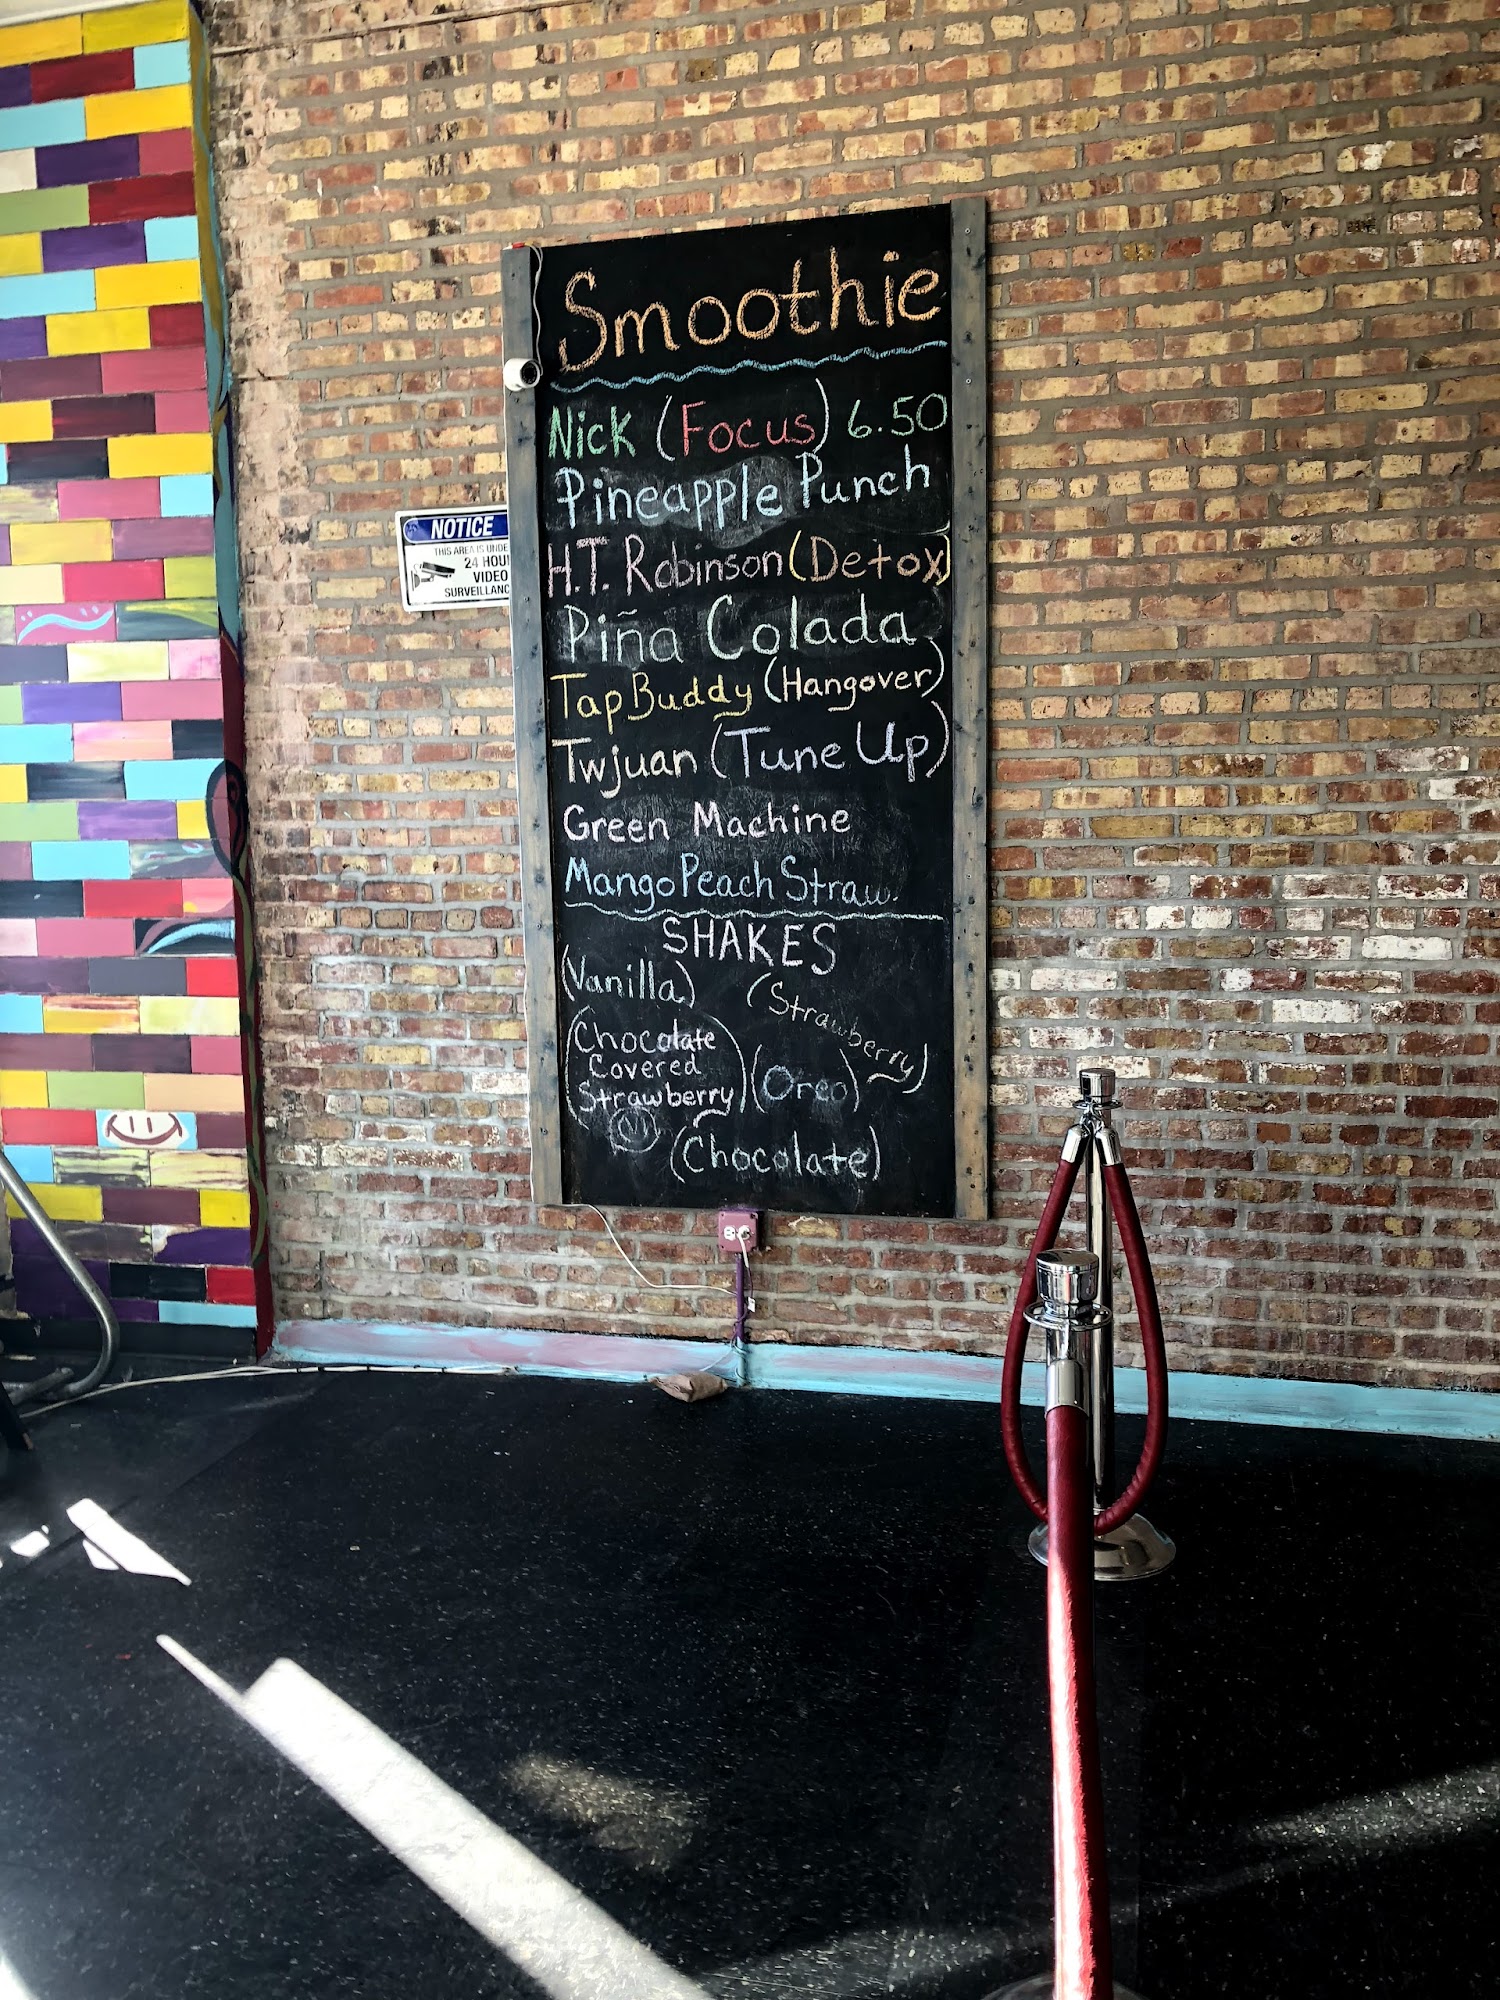 Smoothie
Nick (Focus) 6.50
Pineapple Punch
H.T. Robinson (Detox)
Piña Colada
Tap Buddy (Hangover)
Twjuan (Tune Up)
Green Machine
Mango Peach Straw.
SHAKES
(Vanilla)
(Strawberry)
(Chocolate
Covered
Strawberry)
(Oreo)
(Chocolate)
NOTICE
THIS AREA IS UNDE
24 HOU
VIDEO
SURVEILLANC